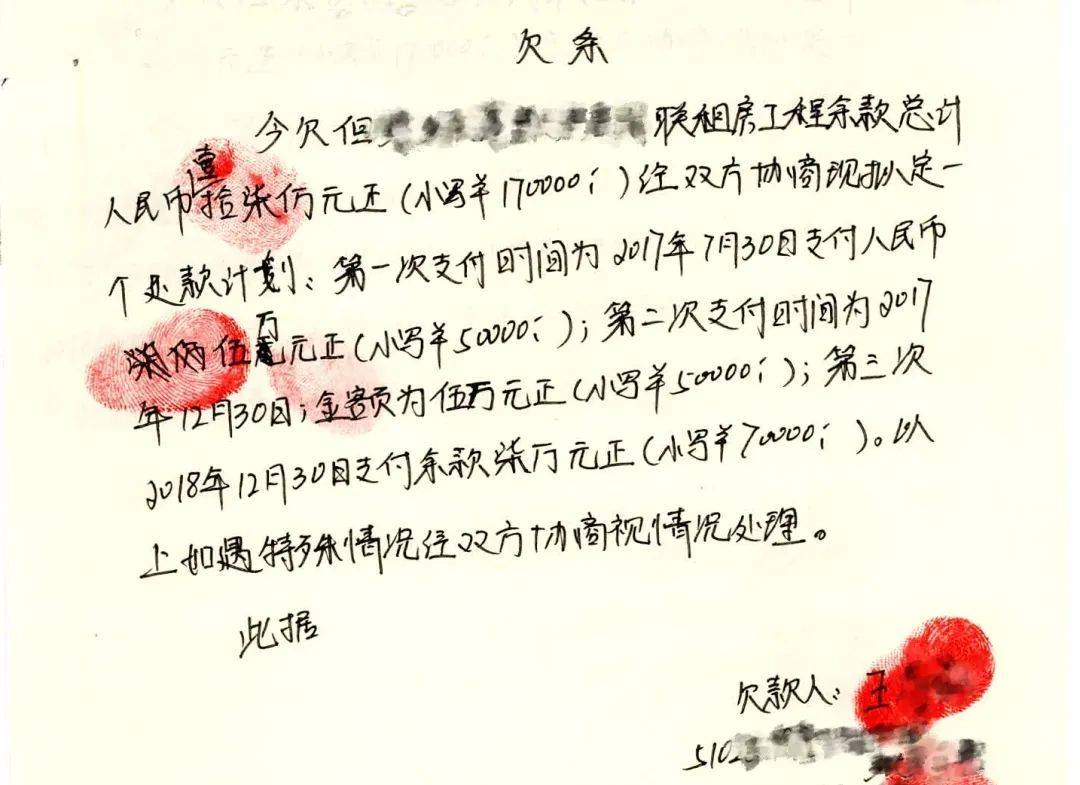 欠条
今欠但 联租房工程余款总计
人民币壹拾柒万元正(小写¥170000;)经双方协商现拟定一
个还款计划：第一次支付时间为2017年7月30日支付人民币
伍万元正(小写¥50000;)；第二次支付时间为2017
年12月30日；金额为伍万元正(小写¥50000;)；第三次
2018年12月30日支付余款柒万元正(小写¥70000;)。以
上如遇特殊情况经双方协商视情况处理。
此据
欠款人：王
5102